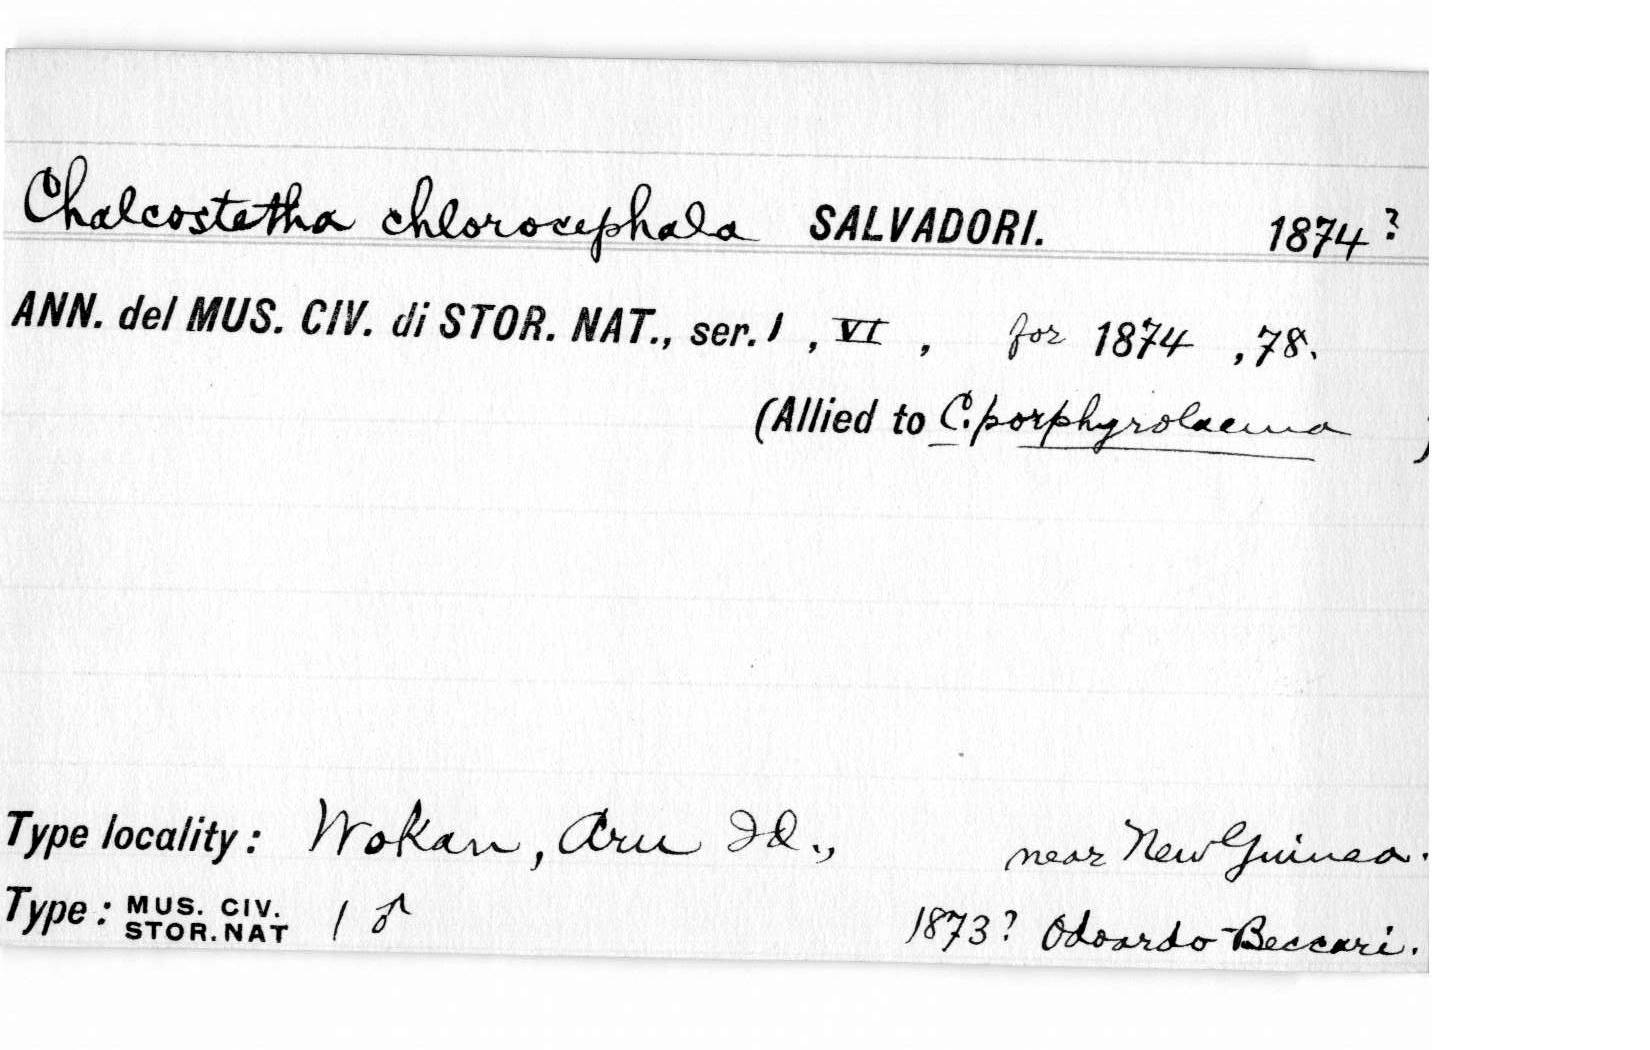 Chalcostetha chlorocephala SALVADORI. 1874?
ANN. del MUS. CIV. di STOR. NAT., ser. 1, VI, for 1874, 78.
(Allied to C. porphyrolaema )
Type locality: Wokan, Aru Id., near New Guinea.
Type: MUS. CIV. STOR. NAT 1 ♂ 1873? Odoardo Beccari.